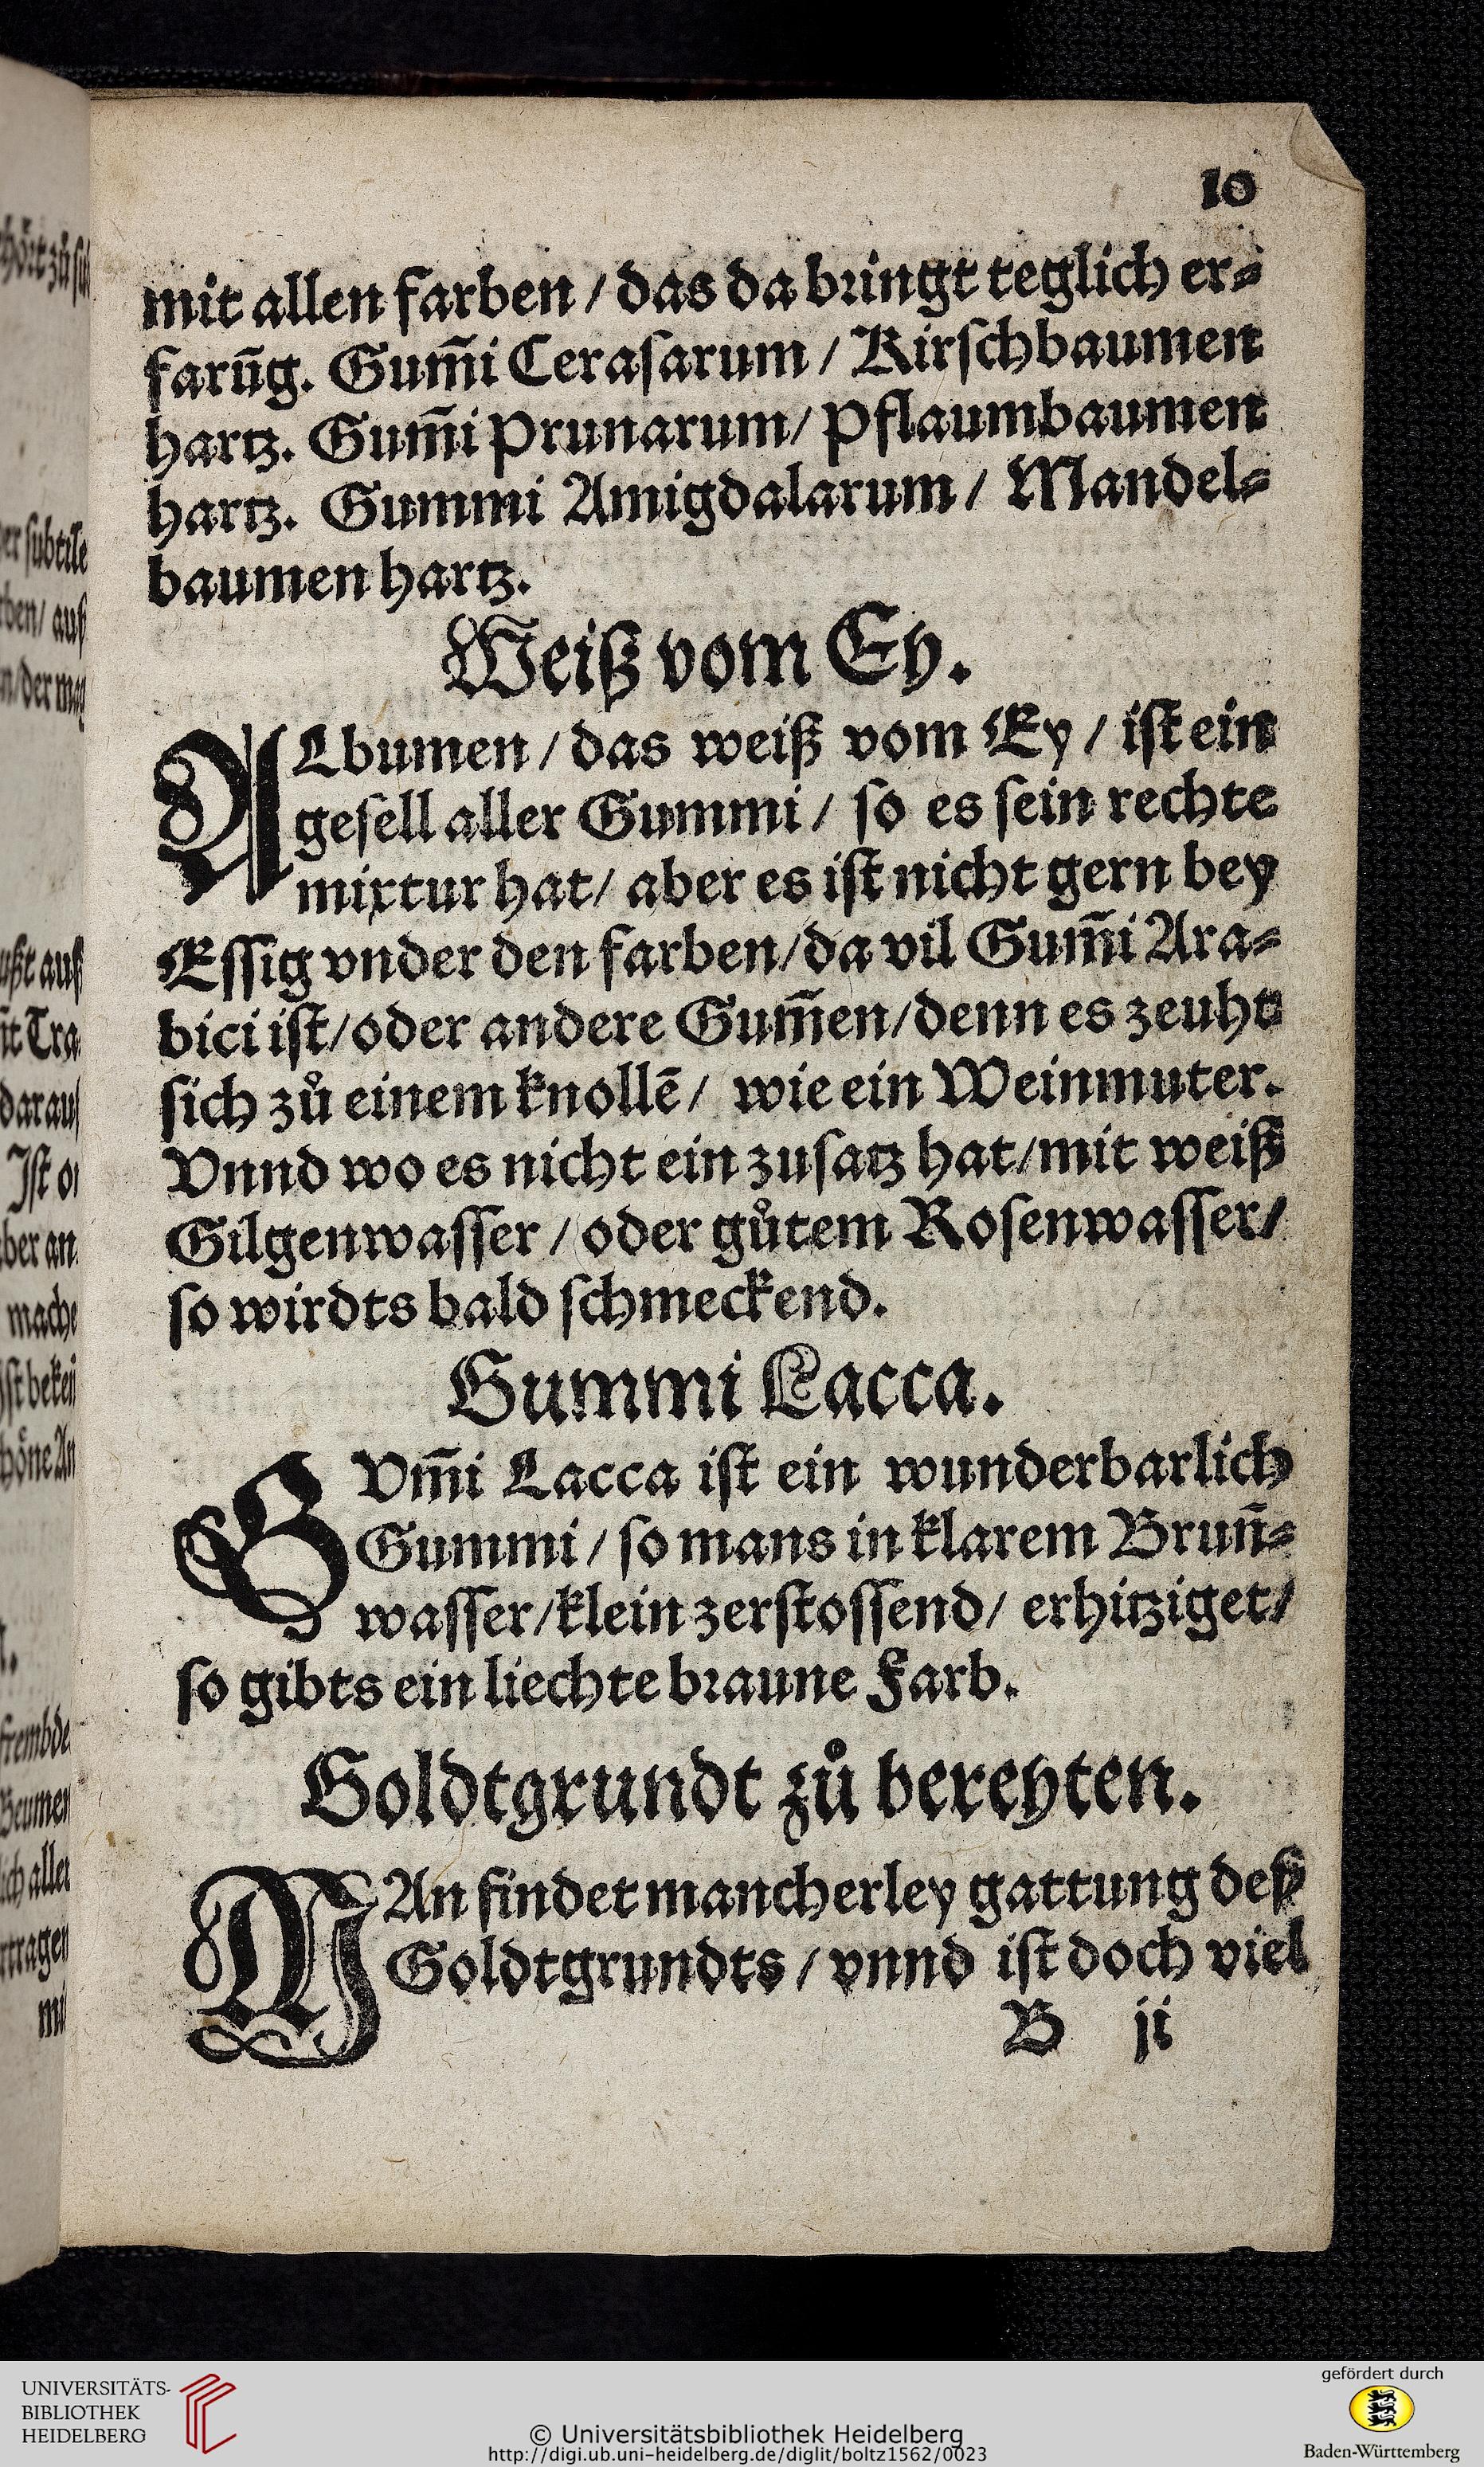 10
mit allen farben / das da bringt teglich er⸗
farūg. Gum̃i Cerasarum / Kirschbaumen
hartz. Gum̃i Prunarum / Pflaumbaumen
hartz. Gummi Amigdalarum / Mandel⸗
baumen hartz.
Weiß vom Ey.
ALbumen / das weiß vom Ey / ist ein
gesell aller Gummi / so es sein rechte
mixtur hat / aber es ist nicht gern bey
Essig vnder den farben / da vil Gum̃i Ara⸗
bici ist / oder andere Gum̃en / denn es zeuht
sich zů einem knollē / wie ein Weinmuter.
Vnnd wo es nicht ein zusatz hat / mit weiß
Gilgenwasser / oder gůtem Rosenwasser /
so wirdts bald schmeckend.
Gummi Lacca.
GVm̃i Lacca ist ein wunderbarlich
Gummi / so mans in klarem Brun̄⸗
wasser / klein zerstossend / erhitziget /
so gibts ein liechte braune Farb.
Goldtgrundt zů bereyten.
MAn findet mancherley gattung deß
Goldtgrundts / vnnd ist doch viel
B ij
UNIVERSITÄTS-
BIBLIOTHEK
HEIDELBERG
© Universitätsbibliothek Heidelberg
http://digi.ub.uni-heidelberg.de/diglit/boltz1562/0023
gefördert durch
Baden-Württemberg